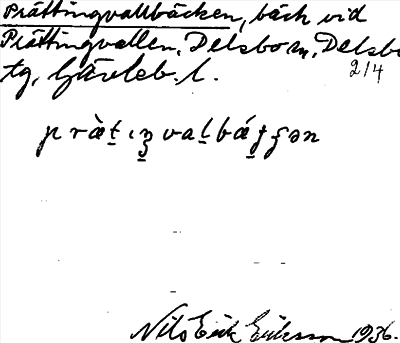 Prättingvallbäcken, bäck vid
Prättingvallen, Delsbo sn, Delsbo
tg, Gävleb. l.
2/4
Nils Erik Eriksson 1936.